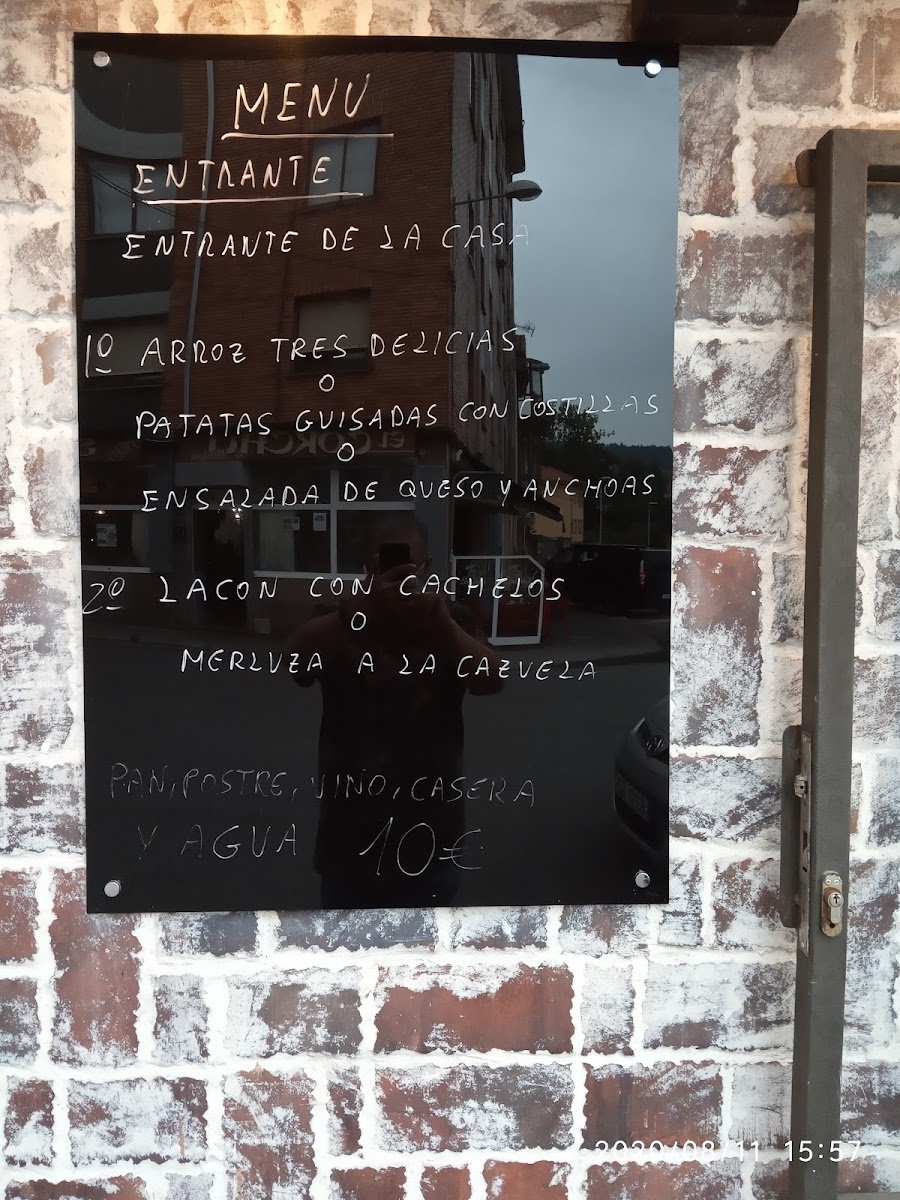 MENU
ENTRANTE
ENTRANTE DE LA CASA
1º ARROZ TRES DELICIAS
O
PATATAS GUISADAS CON COSTILLAS
O
ENSALADA DE QUESO Y ANCHOAS
2º LACON CON CACHELOS
O
MERLUZA A LA CAZUELA
PAN, POSTRE, VINO, CASERA
Y AGUA 10€
2020/08/11 15:57